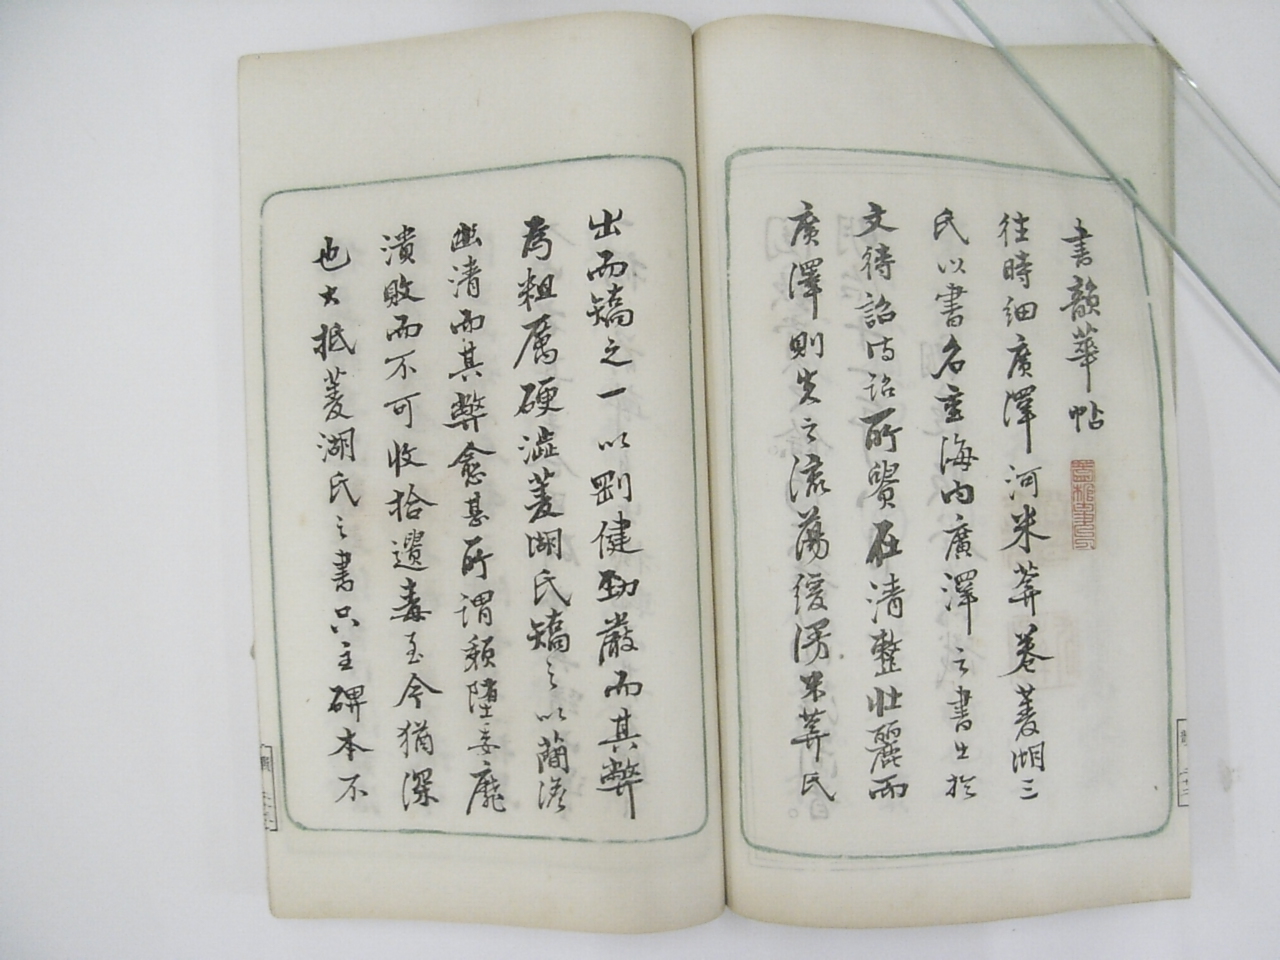 書韻華帖
往時細廣澤河米菴卷菱湖三
氏以書名重海内廣澤之書出於
文待詔待詔所貴在清整壯麗而
廣澤則失之流蕩緩漫米菴氏
出而矯之一以剛健勁嚴而其弊
為粗厲硬澁菱湖氏矯之以簡淡
幽清而其弊愈甚所謂頽墮委靡
潰敗而不可收拾遺毒至今猶深
也大抵菱湖氏之書只主碑本不